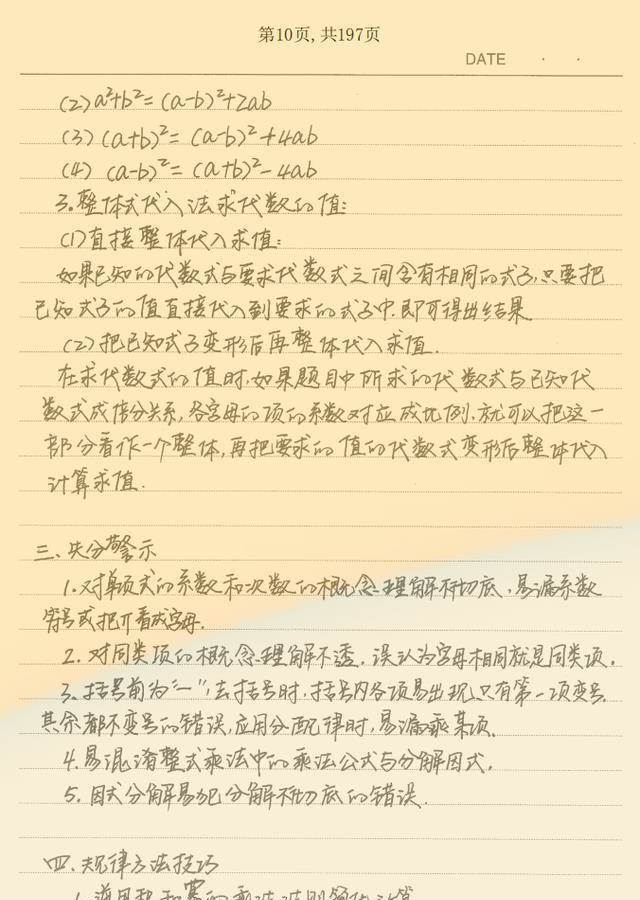 第10页,共197页
DATE · ·
(2) a²+b²=(a-b)²+2ab
(3) (a+b)²=(a-b)²+4ab
(4) (a-b)²=(a+b)²-4ab
3.整体式代入法求代数的值:
(1)直接整体代入求值:
如果已知的代数式与要求代数式之间含有相同的式子,只要把
已知式子的值直接代入到要求的式子中.即可得出结果.
(2)把已知式子变形后再整体代入求值.
在求代数式的值时,如果题目中所求的代数式与已知代
数式成倍分关系,各字母的项的系数对应成比例.就可以把这一
部分看作一个整体,再把要求的值的代数式变形后整体代入
计算求值.
三.失分警示
1.对单项式的系数和次数的概念理解不彻底,易漏系数
符号或把π看成字母.
2.对同类项的概念理解不透,误认为字母相同就是同类项.
3.括号前为“—”,去括号时,括号内各项易出现只有第一项变号,
其余都不变号的错误,应用分配律时,易漏乘某项.
4.易混淆整式乘法中的乘法公式与分解因式.
5.因式分解易犯分解不彻底的错误.
四.规律方法技巧